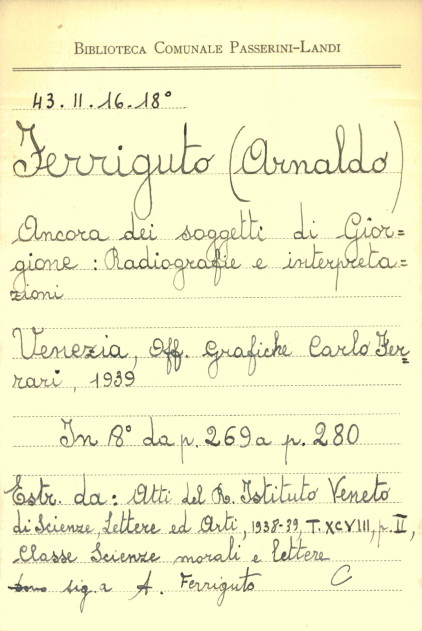 BIBLIOTECA COMUNALE PASSERINI-LANDI
43.II.16.18°
Ferriguto (Arnaldo)
Ancora dei soggetti di Gior=
gione : Radiografie e interpreta=
zioni
Venezia, Off. Grafiche Carlo Fer=
rari, 1939
In 8° da p. 269 a p. 280
Estr. da: Atti del R. Istituto Veneto
di Scienze, Lettere ed Arti, 1938-39, T. XCVIII, p. II,
Classe Scienze morali e lettere
dono sig.a A. Ferriguto C